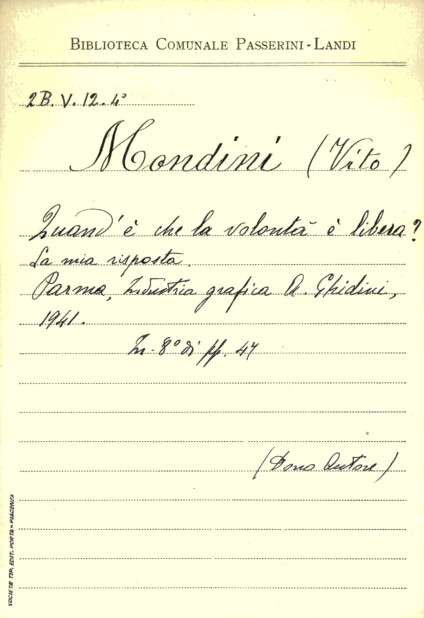 BIBLIOTECA COMUNALE PASSERINI-LANDI
2B. V. 12. 4°
Mondini (Vito)
Quand'è che la volontà è libera?
La mia risposta.
Parma, Industria grafica A. Ghidini,
1941.
In-8° di pp. 47
(Dono Autore)
SOCIETÀ TIP. EDIT. PORTA - PIACENZA